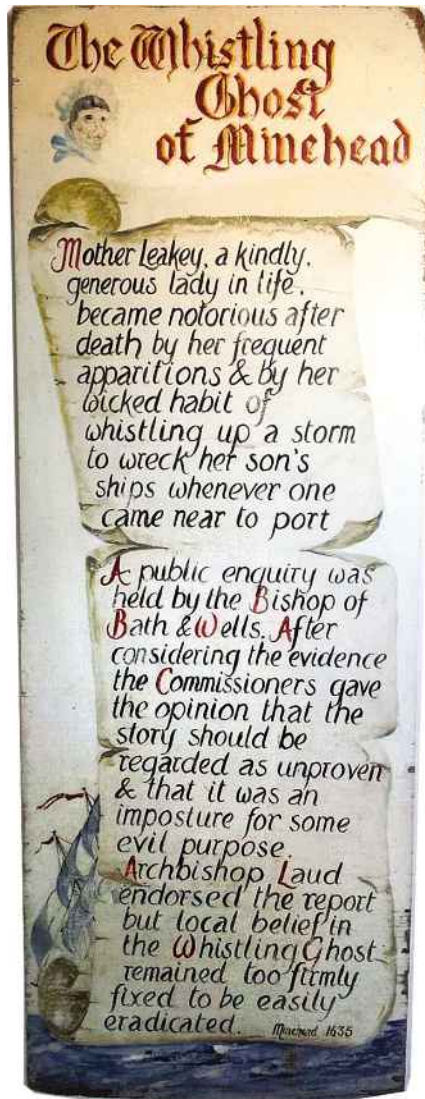 The Whistling
Ghost
of Minehead
Mother Leakey, a kindly,
generous lady in life,
became notorious after
death by her frequent
apparitions & by her
wicked habit of
whistling up a storm
to wreck her son's
ships whenever one
came near to port
A public enquiry was
held by the Bishop of
Bath & Wells. After
considering the evidence
the Commissioners gave
the opinion that the
story should be
regarded as unproven
& that it was an
imposture for some
evil purpose.
Archbishop Laud
endorsed the report
but local belief in
the Whistling Ghost
remained too firmly
fixed to be easily
eradicated. Minehead 1635